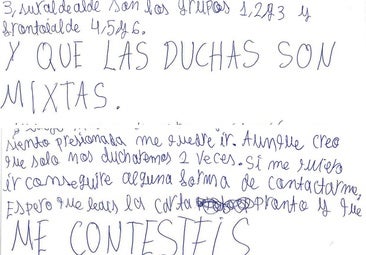 3, suraldealde son los grupos 1,2y3 y
frontoialde 4,5y6.
Y QUE LAS DUCHAS SON
MIXTAS.
siento presionada me puedo ir. Aunque creo
que solo nos ducharemos 2 veces. Si me quiero
ir conseguire alguna forma de contactarme,
Espero que leais la carta pronto y que
ME CONTESTEIS